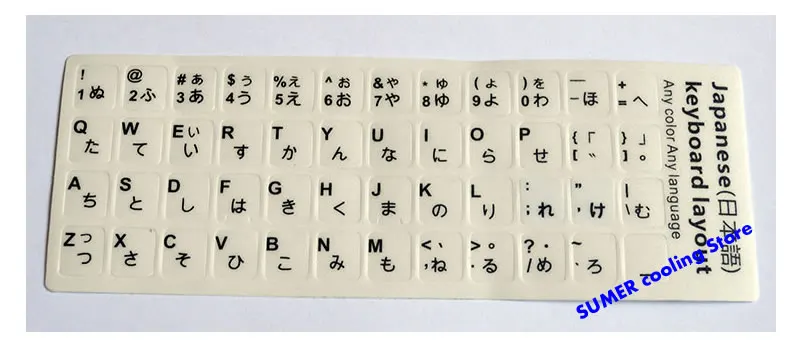 ! @ # ぁ $ ぅ % ぇ ^ ぉ & ゃ * ゅ ( ょ ) を — +
1 ぬ 2 ふ 3 あ 4 う 5 え 6 お 7 や 8 ゆ 9 よ 0 わ - ほ = へ
Q W E ぃ R T Y U I O P { 「 } 」
た て い す か ん な に ら せ [ ゛ ] 。
A S D F G H J K L : " |
ち と し は き く ま の り ; れ ' け \ む
Z っ X C V B N M < 、 > 。 ? ・ ~
つ さ そ ひ こ み も , ね . る / め ろ
Japanese(日本語)
keyboard layout
Any color Any language
SUMER cooling Store